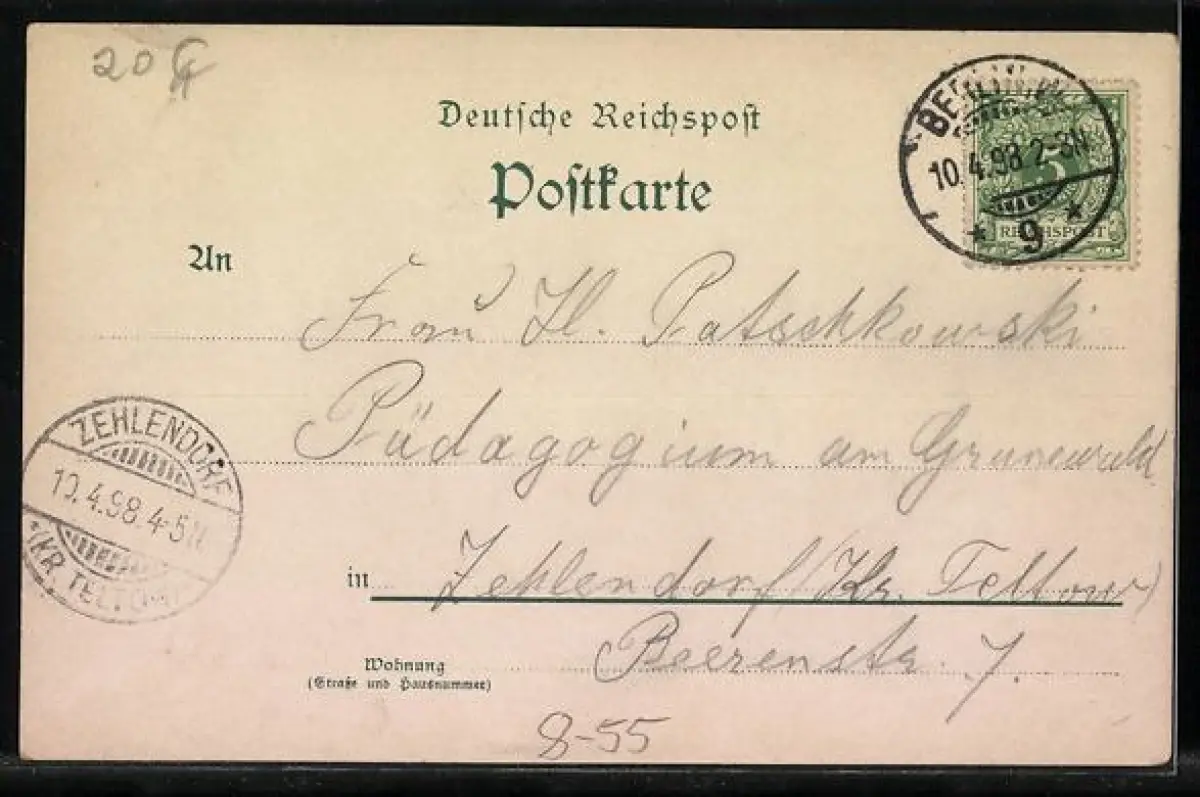 20
Deutsche Reichspost
Postkarte
BERLIN
10.4.98.2-3N.
* 9 *
REICHSPOST
An
Frau H. Patschkowski
Pädagogium am Grunewald
ZEHLENDORF
10.4.98.4-5N.
*(KR. TELTOW)
in Zehlendorf (Kr. Teltow)
Wohnung
(Straße und Hausnummer)
Beerenstr. 7.
8-55